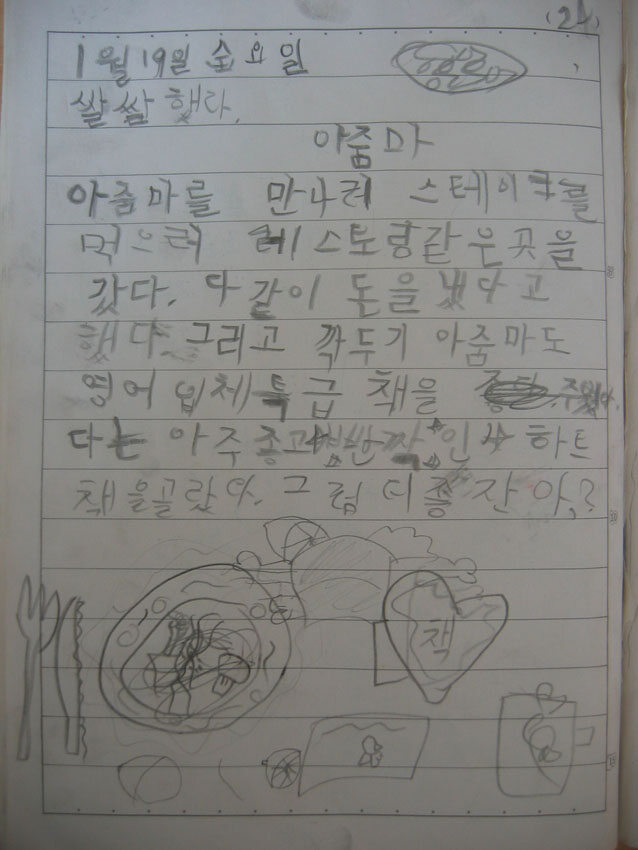 (21)
1월 19일 수요일
쌀쌀했다.
아줌마
아줌마를 만나러 스테이크를
먹으러 레스토랑같은 곳을
갔다. 다같이 돈을 냈다고
했다. 그리고 깍두기 아줌마도
영어 입체특급 책을 주었다.
다는 아주 좋고 반짝인 하트
책을골랐다. 그럼 더 좋잔아,?
책